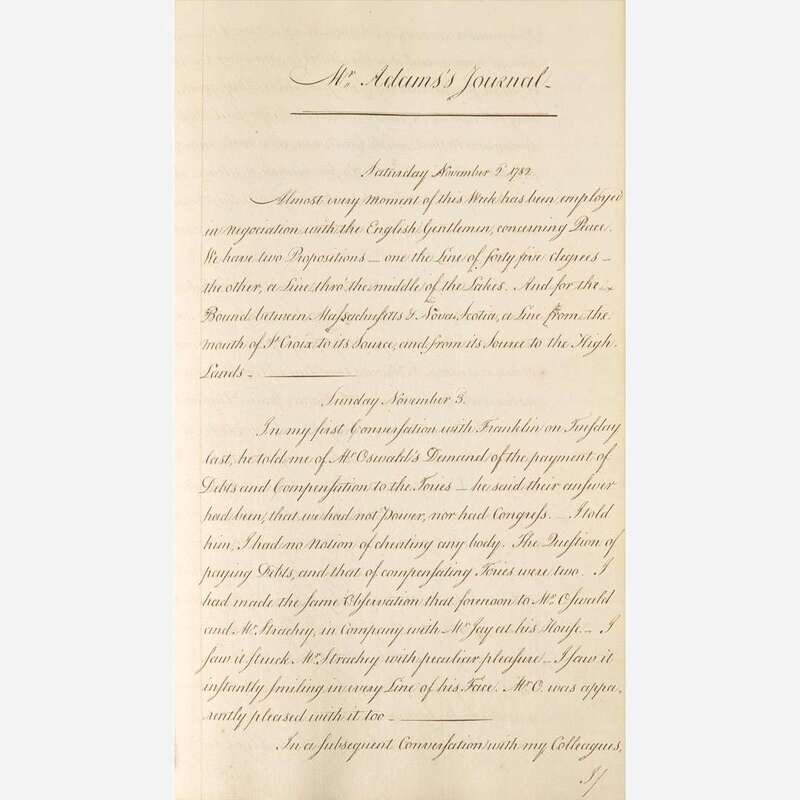 Mr. Adams's Journal_
Saturday November 2 1782
Almost every moment of this Week has been employed
in negociation with the English Gentlemen, concerning Peace.
We have two Propositions _ one the Line of forty five degrees _
the other, a Line thro' the middle of the Lakes. And for the
Bound between Massachusetts & Nova Scotia, a Line from the
mouth of St Croix to its Source, and from its Source to the High
Lands _
Sunday November 3.
In my first Conversation with Franklin on Tuesday
last, he told me of Mr Oswald's Demand of the payment of
Debts and Compensation to the Tories _ he said their answer
had been, that we had not power, nor had Congress. _ I told
him, I had no notion of cheating any body. The Question of
paying Debts, and that of compensating Tories were two. I
had made the same Observation that forenoon to Mr. Oswald
and Mr. Strachey, in Company with Mr Jay at his House. _ I
saw it struck Mr. Strachey with peculiar pleasure _ I saw it
instantly smiling in every Line of his Face. Mr O. was appa,
rently pleased with it too _
In a subsequent Conversation with my Colleagues,